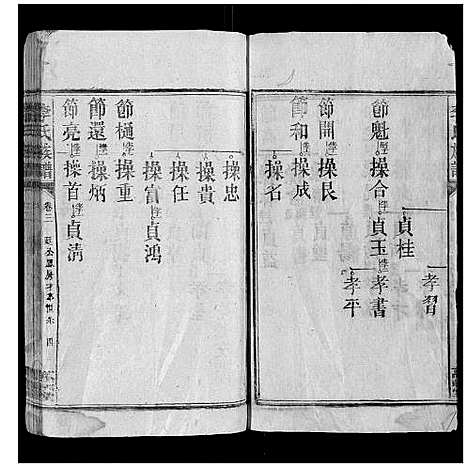 貞桂 孝習
節魁 操合 貞玉 孝書
孝平
節開 操艮
節和 操成
操名
操忠
操貴
操任
操富 貞鴻
節樋 操重
節還 操炳
節亮 操首 貞淸
李氏族譜 卷三